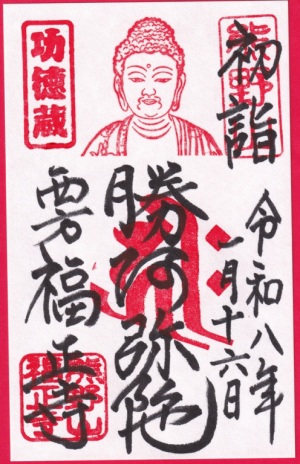 初詣
令和八年
一月十六日
勝阿弥陀
功徳蔵
福正寺